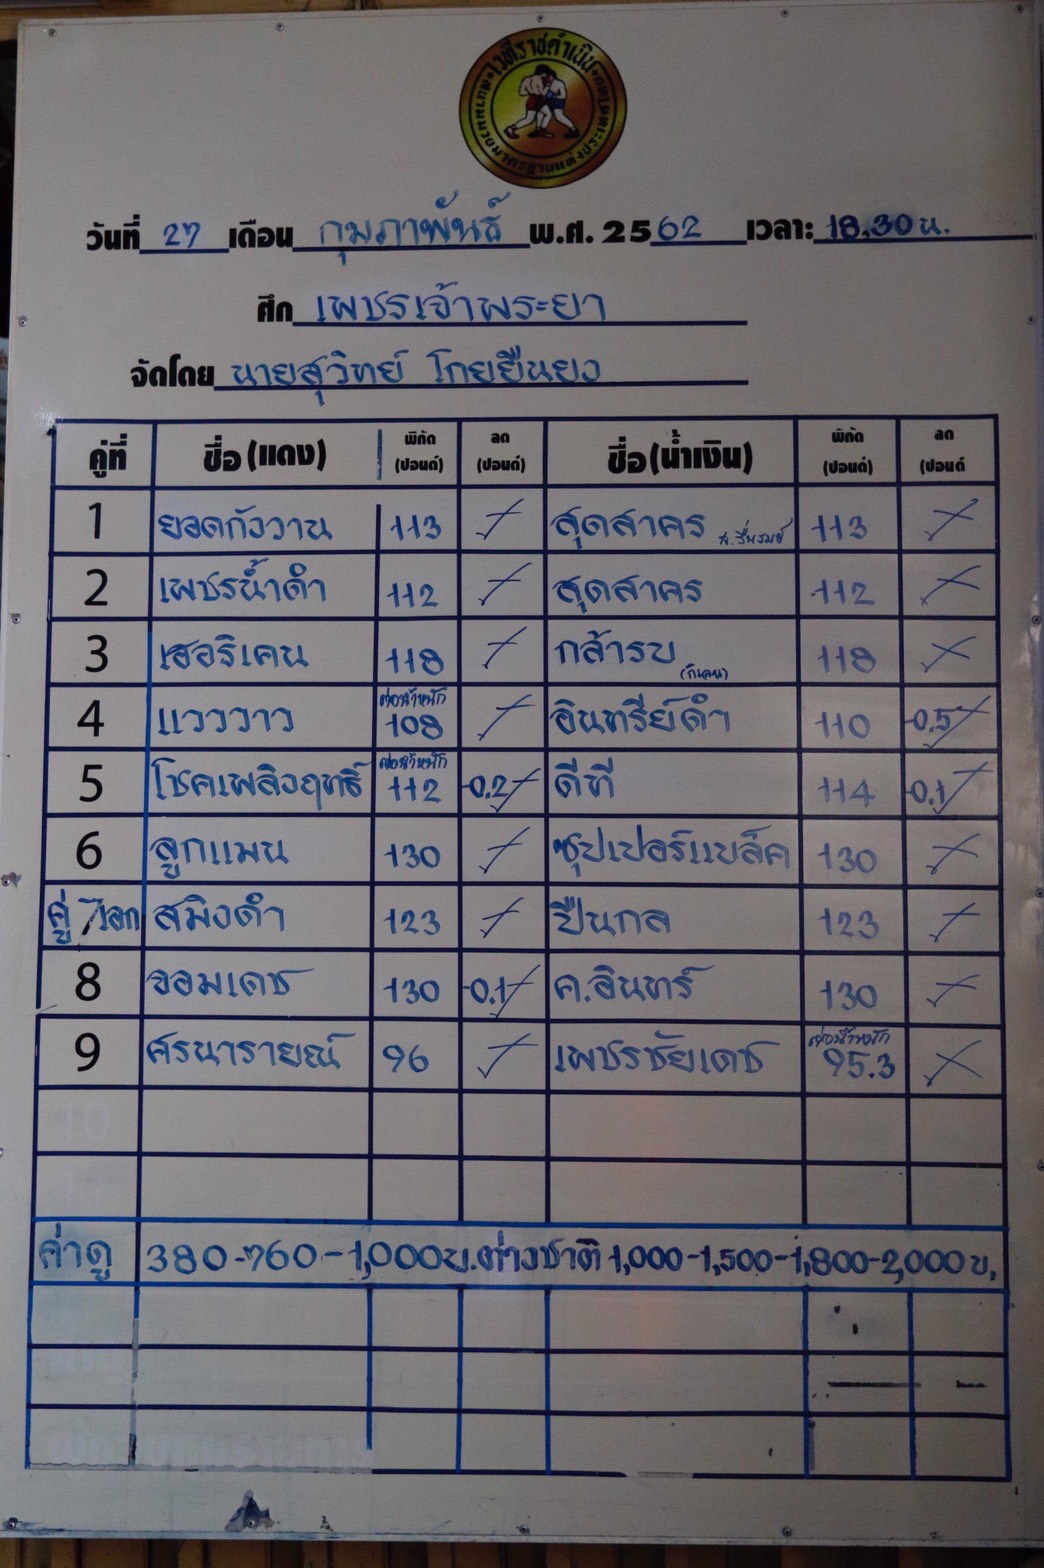 เวทีราชดำเนิน
วันที่ 27 เดือน กุมภาพันธ์ พ.ศ. 2562 เวลา: 18.30 น.
ศึก เพชรเจ้าพระยา
จัดโดย นายสุวิทย์ โกยยืนยง
คู่ที่ ชื่อ (แดง) พิกัด (ปอนด์) ลด (ปอนด์) ชื่อ (น้ำเงิน) พิกัด (ปอนด์) ลด (ปอนด์)
1 ยอดกังวาน 113 สุดสาคร 113
2 เพชรน้ำดำ 112 สุดสาคร 112
3 เฮอริเคน 118 กล้ารบ 118
4 แวววาว ต่อน้ำหนัก 108 อินทรีย์ดำ 110 -0.5
5 โชคเพลิงฤทธิ์ ต่อน้ำหนัก 112 -0.2 ดีที 114 -0.1
6 ลูกแมน 130 ซุปเปอร์แบล็ค 130
คู่ 7 เอก สมิงดำ 123 ปืนกล 123
8 จอมเดช 130 -0.1 ค.อินทร์ 130
9 ศรนารายณ์ 96 เพชรชัยเดช ต่อน้ำหนัก 95.3
ค่าดู 380-760-1,000 บ. ต่างชาติ 1,000-1,500-1,800-2,000 บ.